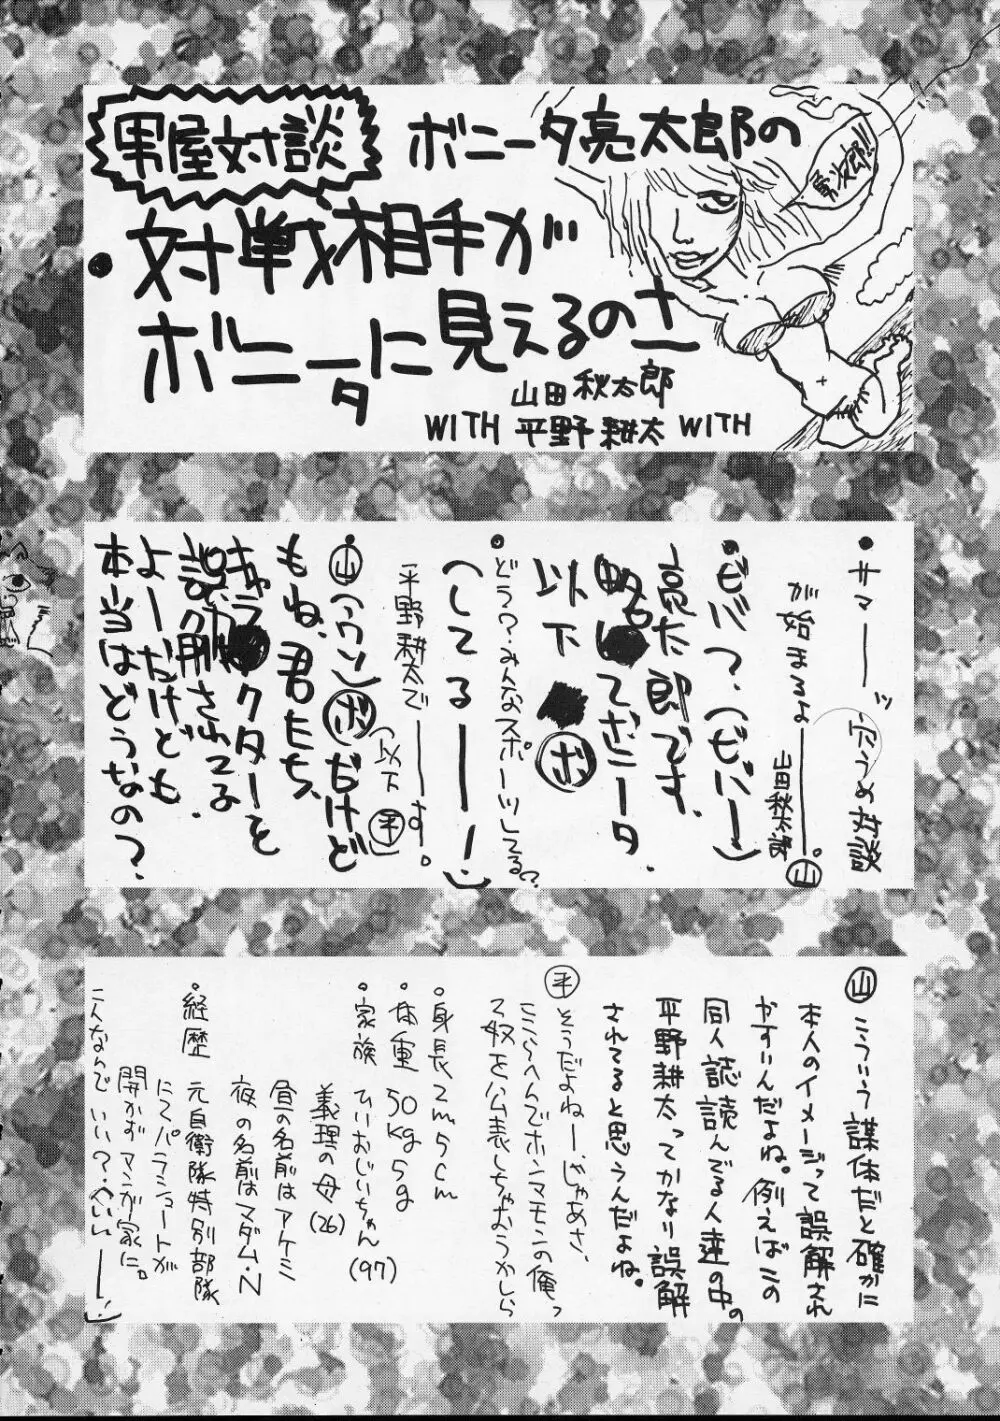 男屋対談
ボニータ亮太郎の
対戦相手が
ボニータに見えるのさ
山田秋太郎
WITH 平野耕太 WITH
•サマーッ 穴うめ対談
が始まるよ――。㊤
山田秋太郎
•ビバ?、(ビバー)
亮太郎です。
略してボニータ。
以下 ボ
•どう?、みんなスポーツしてる?
(してるーー!)
平野耕太でーーす。
(以下 平)
山(ウン)ボだけど
もね、君たち、
キャラクターを
誤解されてる
よーだけども
本当はどうなの?
山 こういう媒体だと確かに
本人のイメージって誤解され
やすいんだよね。例えばこの
同人誌読んでる人達の中の
平野耕太ってかなり誤解
されてると思うんだよね。
平 そうだよねー、じゃあさ、
ここらへんでホンマモンの俺っ
て奴を公表しちゃおうかしら
•身長 2m5cm
•体重 50kg5g
•家族 ひいおじいちゃん(97)
義理の母(26)
昼の名前はアケミ
夜の名前はマダム・N
•経歴 元自衛隊特別部隊
にてパラシュートが
開かずマンガ家に。
こんなんでいい?、(いいーー!)